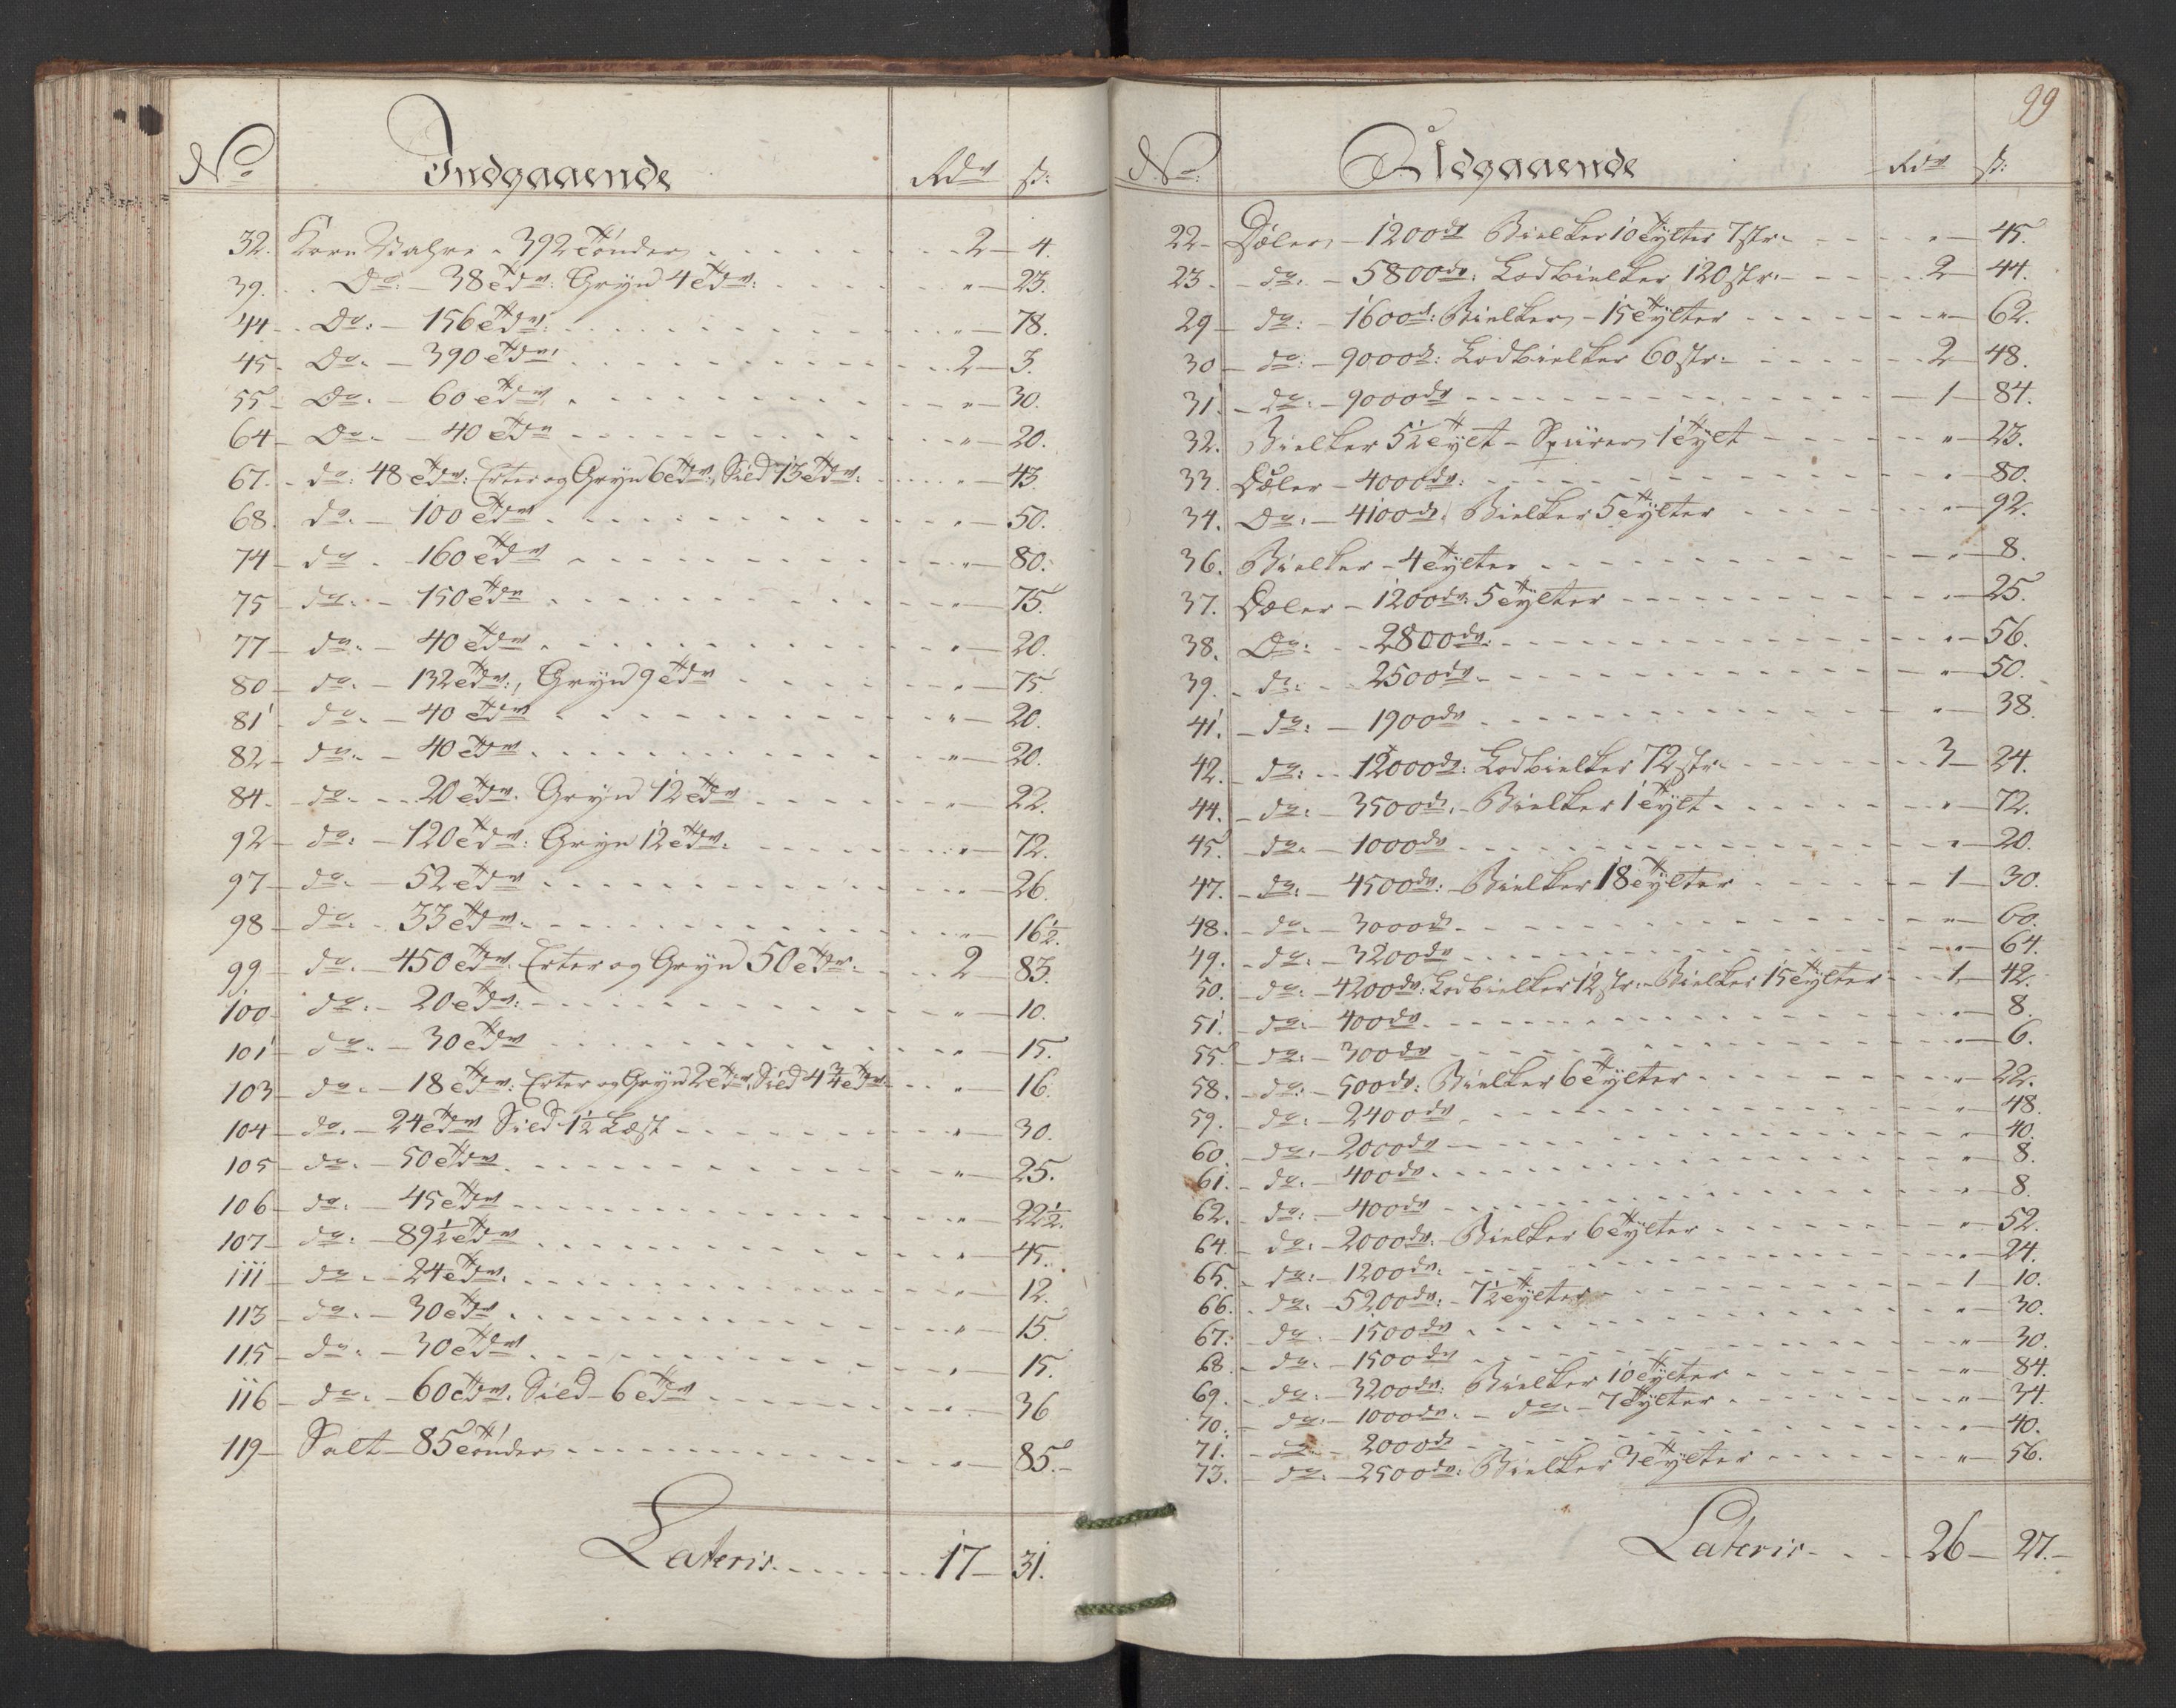 No Indgaaende Rdr ß:
32. Korn Vahre - 392 Tönder 2 - 4.
39. Do: - 38 Tdr: Gryn 4 Tdr: " - 23.
44 - Do: - 156 Tdr: " - 78.
45 - Do. - 390 Tdr: 2 - 3.
55 - Do. - 60 Tdr " - 30.
64 - Do. - 40 Tdr " - 20.
67. - do: 48 Tdr: Erter og Gryn 6 Tdr:, Sild 13 Tdr: " - 43.
68. do. - 100 Tdr " - 50.
74 - do - 160 Tdr " - 80.
75 - do. - 150 Tdr " - 75.
77 - do. - 40 Tdr " - 20.
80 - do. - 132 Tdr:, Gryn 9 Tdr " - 75.
81 - do. - 40 Tdr " - 20.
82 - do. - 40 Tdr " - 20.
84. - do. - 20 Tdr. Gryn 12 Tdr " - 22.
92 - do: - 120 Tdr: Gryn 12 Tdr. " - 72.
97 - do. - 52 Tdr " - 26.
98 - do. - 33 Tdr. " - 16½.
99 - do. - 450 Tdr. Erter og Gryn 50 Tdr. 2 - 83.
100 - do. - 20 Tdr: " - 10.
101 - do. - 30 Tdr " - 15.
103 - do. - 18 Tdr: Erter og Gryn 2 Tdr, Sild 4¾ Tdr " - 16.
104 - do. - 24 Tdr Sild 1½ Læst " - 30.
105 - do. - 50 Tdr " - 25.
106 - do. - 45 Tdr " - 22½.
107 - do: - 89½ Tdr " - 45.
111 - do. - 24 Tdr. " - 12.
113 - do. - 30 Tdr " - 15.
115 - do. - 30 Tdr " - 15.
116 - do. - 60 Tdr. Sild - 6 Tdr " - 36
119 - Salt - 85 Tönder " - 85.-
Lateris 17 - 31.
99
No: Udgaaende Rdr ß:
22 - Dæler - 1200 dr Bielker 10 Tylter 7 str. " - 45.
23. - do. - 5800 dr: Lodbielker 120 str: 2 - 44.
29 - do: - 1600 dr: Bielker - 15 Tylter " - 62.
30 - do: - 9000 dr: Lodbielker 60 str. 2 - 48.
31. - do: - 9000 dr 1 - 84.
32. Bielker 5½ Tylt - Spiirer 1 Tylt " - 23.
33. Dæler - 4000 dr: " - 80.
34. Do. - 4100 dr. Bielker 5 Tylter " - 92.
36. Bielker - 4 Tylter " - 8.
37. Dæler - 1200 dr: 5 Tylter " - 25.
38. Do: - 2800 dr: " - 56.
39. - do: - 2500 dr. " - 50.
41. - do: - 1900 dr " - 38.
42. - do: - 12000 dr: Lodbielker 72 str. 3 - 24.
44. - do: - 3500 dr. - Bielker 1 Tylt. " - 72.
45. - do. - 1000 dr " - 20.
47. - do: - 4500 dr: Bielker 18 Tylter 1 - 30.
48. - do. - 3000 dr " - 60.
49. - do: - 3200 dr " - 64.
50. - do: - 4200 dr: Lodbielker 12 str: - Bielker 15 Tylter 1 - 42.
51. - do. - 400 dr " - 8.
55. - do: - 300 dr " - 6.
58. - do: - 500 dr: Bielker 6 Tylter " - 22.
59. - do: - 2400 dr " - 48.
60. - do. - 2000 dr " - 40.
61. - do. - 400 dr " - 8.
62. - do: - 400 dr " - 8.
64. - do: - 2000 dr: - Bielker 6 Tylter " - 52.
65. - do: - 1200 dr: " - 24.
66. - do. - 5200 dr: - 7½ Tylter 1 - 10.
67. - do. - 1500 dr " - 30.
68. - do. - 1500 dr " - 30.
69. - do: - 3200 dr: Bielker 10 Tylter " - 84.
70. - do. - 1000 dr. - do. - 7 Tylter " - 34.
71. - do. - 2000 dr " - 40.
73. - do. - 2500 dr: Bielker 3 Tylter " - 56.
Lateris 26 - 27.-